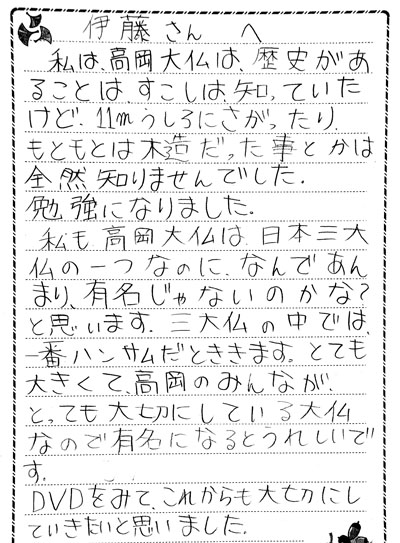 伊藤さんへ
私は、高岡大仏は、歴史があ
ることは、すこしは、知っていた
けど、11mうしろにさがったり、
もともとは木造だった事とかは
全然知りませんでした。
勉強になりました。
私も高岡大仏は、日本三大
仏の一つなのに、なんであん
まり、有名じゃないのかな?
と思います。三大仏の中では、
一番ハンサムだとききます。とても
大きくて、高岡のみんなが、
とっても大切にしている大仏
なので有名になるとうれしいで
す。
DVDをみて、これからも大切にし
ていきたいと思いました。